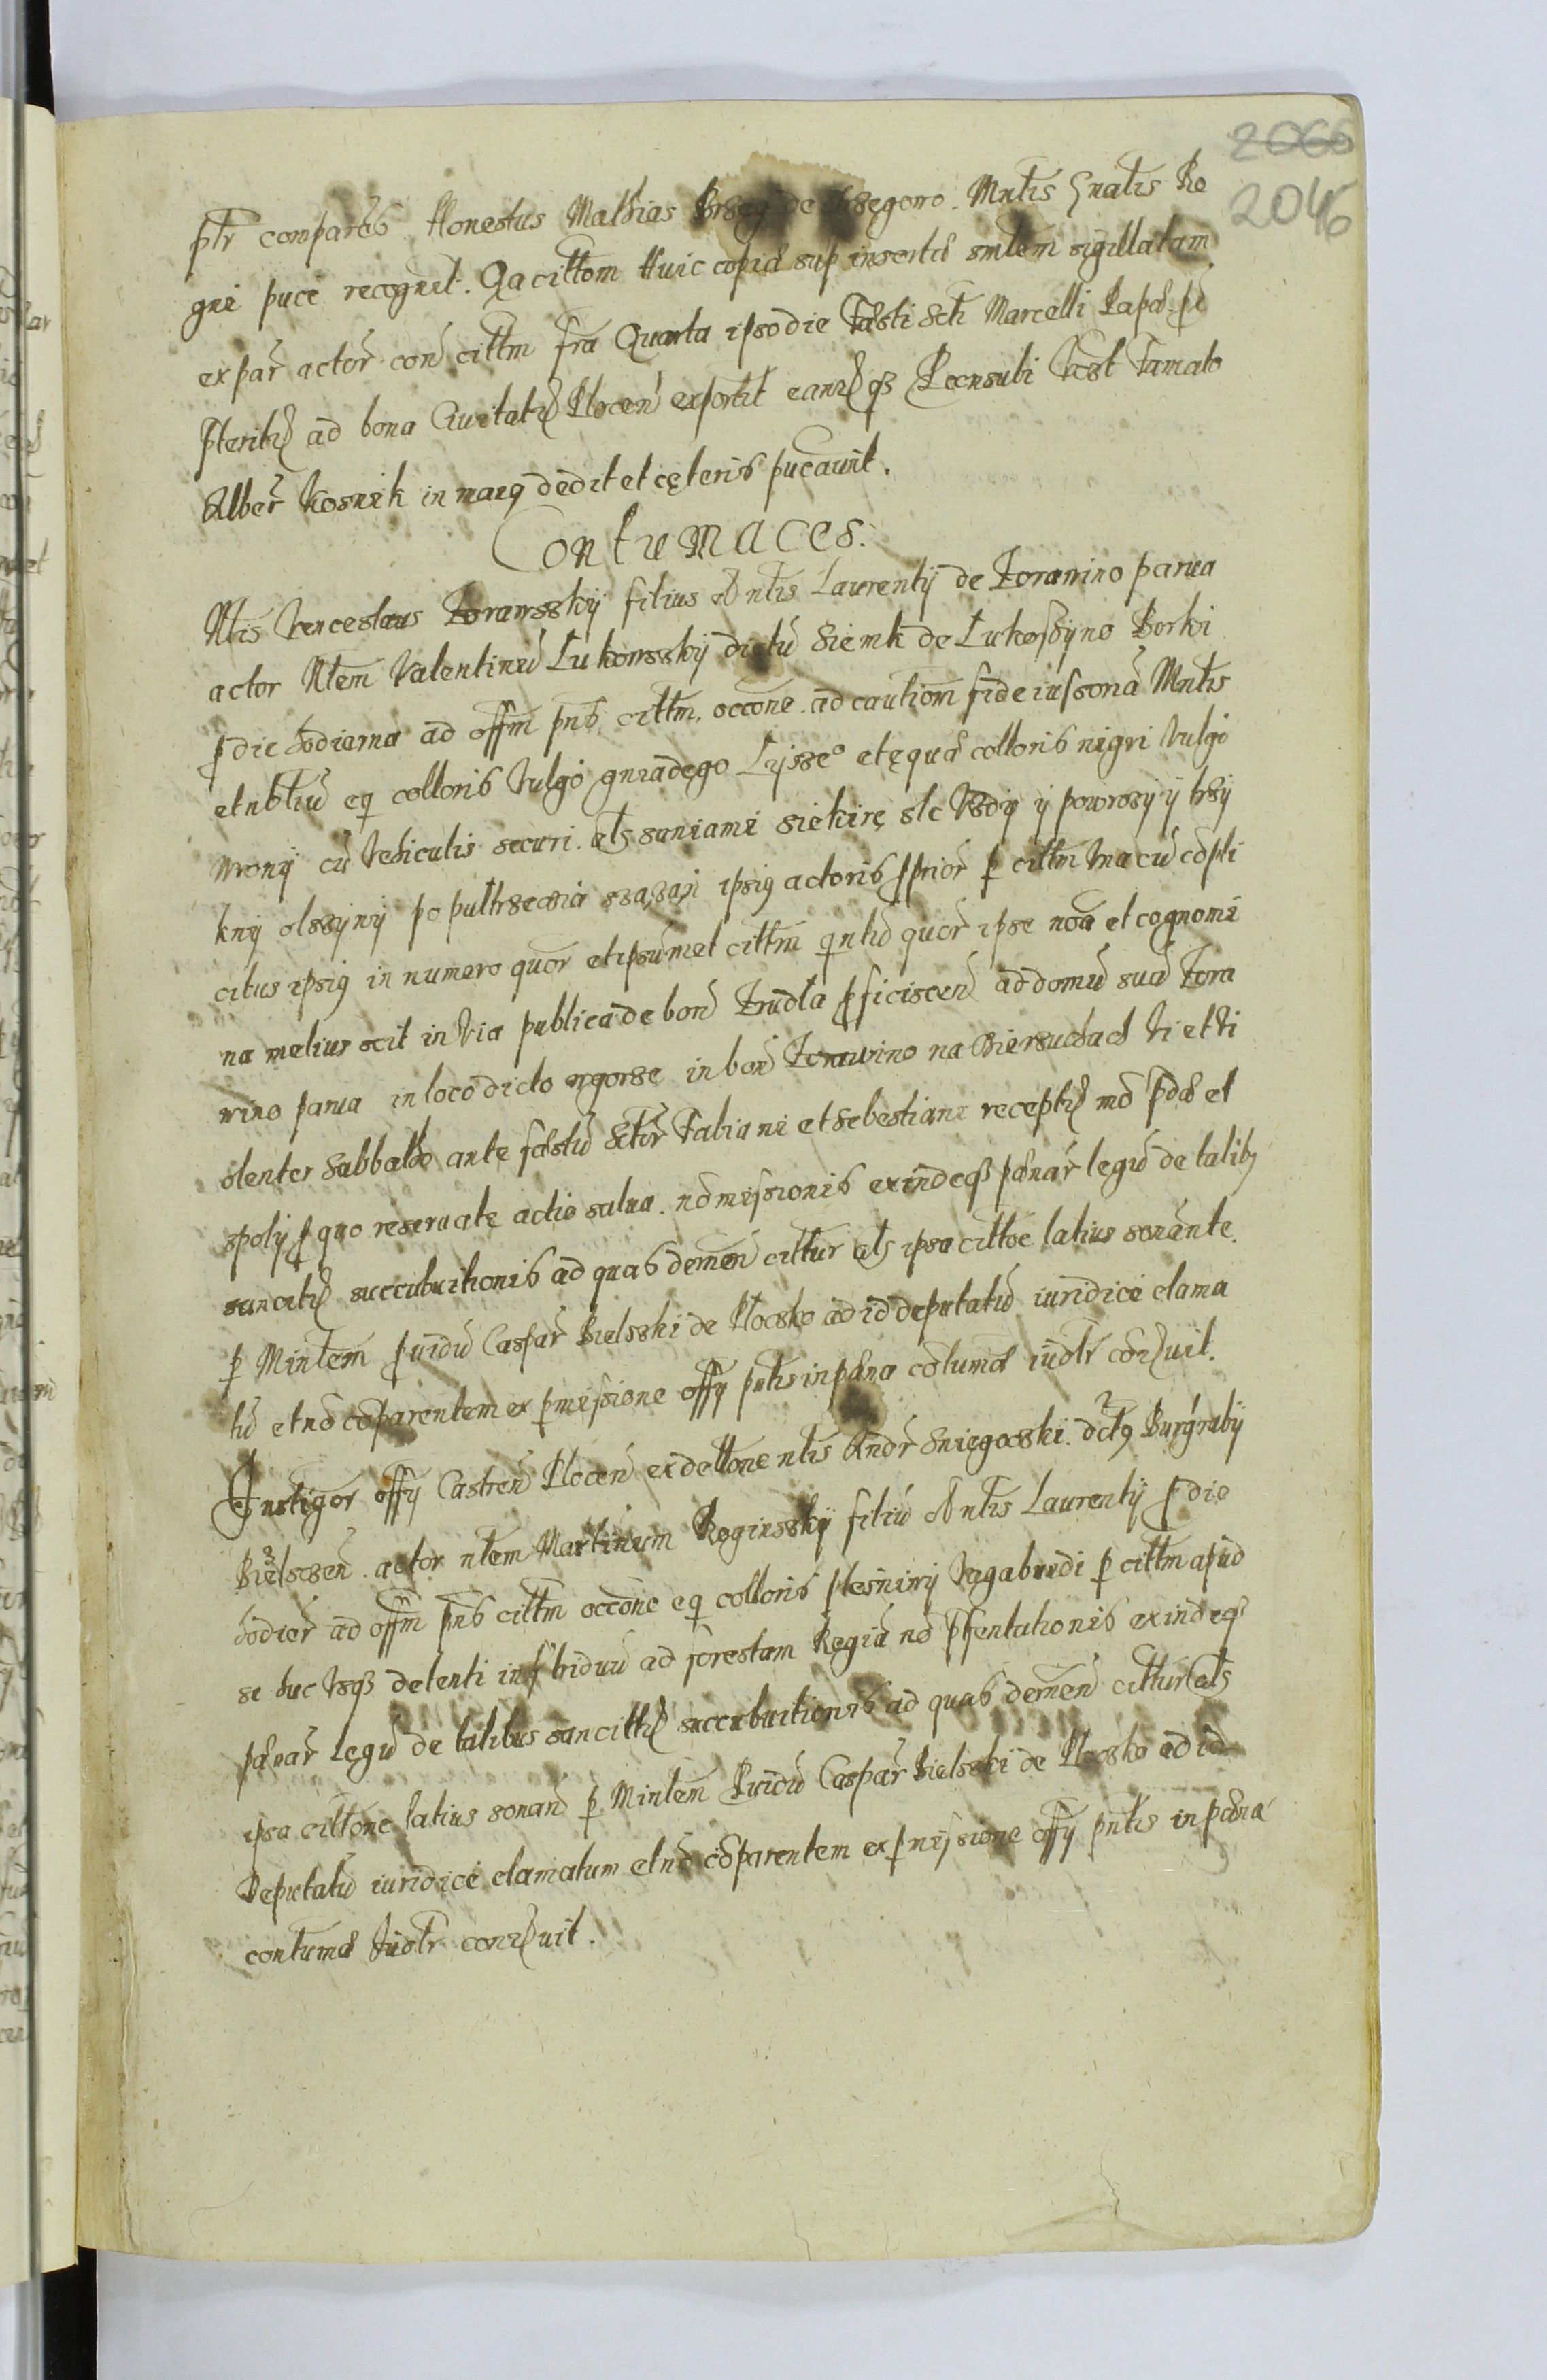 2066
2046
ptr comparēs Honestus Mathias Brzeg de Brzegowo. Mntis Gnatis Re
gni puce recognit. Qa cittom Huic copiæ sup insertæ smlem sigillatam
ex par actor con cittm fra Quarta ipso die Festi Scti Marcelli Papæ pd
pterit ad bona Ciuitatis Plocen exportit eamq Poconsuli Vest Famato
Alber Kosnik in marg dedit et cęteris pucauit.
Contumaces.
Ntis Venceslaus Zorawsskij filius Antis Laurentij de Zorawino parua
actor Ntem Valentinū Lukowsskij dictū Siemk de Lukossyno Borki
p die hodierna ad offm pns cittm. occone. ad cautiom fideiussoriā Mntis
et nbliū eq colloris Vulgo gniadęgo Lysse° et equæ colloris nigri Vulgo
wronij cū Vehiculis securi. als saniami siekirę slc Vzdy ij powrosij ij trzij
knij olssijnij po pultrzecia szazanj ipsiq actoris pprior p cittm Vna cū cōpli
citus ipsiq in numero quor et ipsumet cittm qntū quor ipse noa et cognomi
na melius scit in Via publica de bon Trudla pficiscen ad domū suā Zora
wino parua in loco dicto ngorze in bon Zorawino na Biersuchach Vi et Vi
olenter Sabbatho ante festū Sctor Fabiani et Sebestiani recept mō pdæ et
spolij p quo reseruatę actio salua. nōmissionis exindeqȝ pænar legū de talibȝ
sancit succubuitionis ad quas demen cittur als ipsa cittoe latius sonante.
p Mintem puidū Caspar Bielsski de Plocsko ad id deputatū iuridice clama
tū et nō cōparentem ex pmissione offij pntis in pæna cōtumæ iudtr cōȝuit.
Instigor offij Castren Plocen ex dellone ntis Andr Sniegocski. dctq Burgrabij
Bielscen. actor ntem Martinum Rogiesskij filiū Antis Laurentij p die
hodier ad offm pns cittm occone eq colloris plesniwij Vagabundi p cittm apud
se huc Vsqȝ detenti inf triduū ad forestam Regiā nō pſentationis exindeqȝ
pænar legū de talibus sancitt succubuitionis ad quas demen cittur als
ipsa cittone latius sonan p Mintem Puidū Caspar Bielsski de Plocsko ad id
Deputatū iuridice clamatum et nō cōparentem ex pmissione offij pntis in pæna
contumæ Iudtr conȝuit.